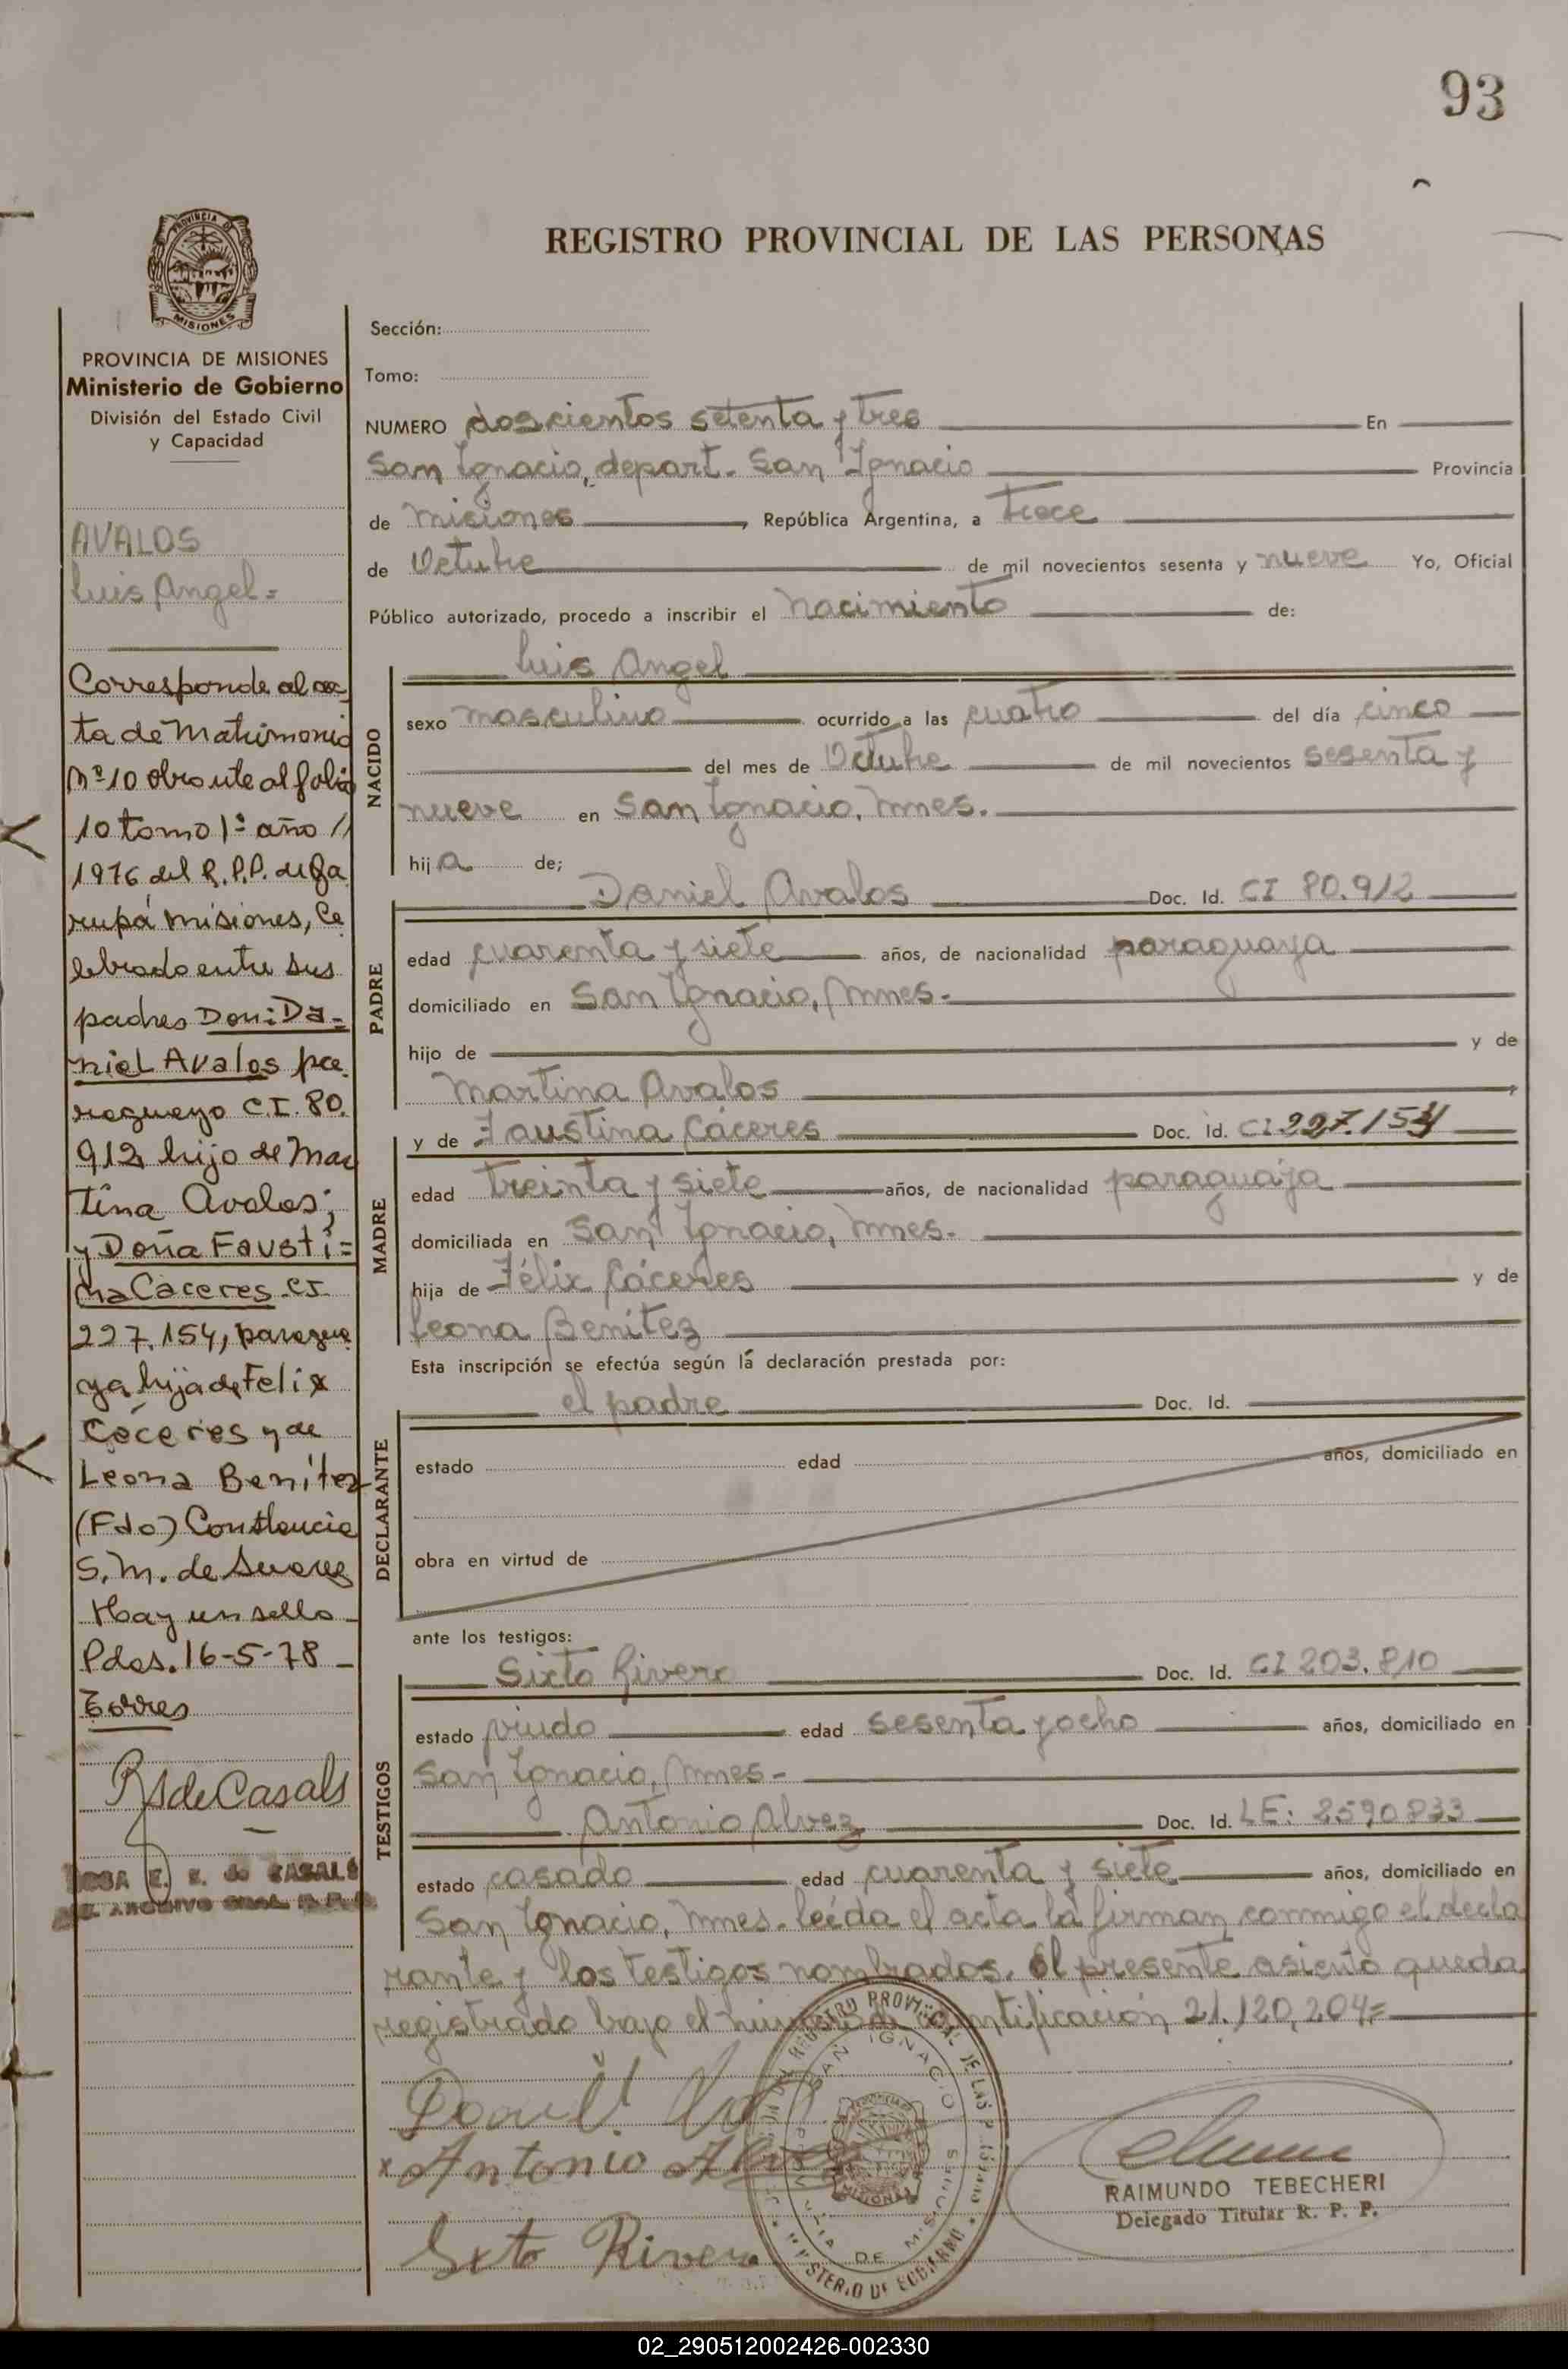 93
REGISTRO PROVINCIAL DE LAS PERSONAS
PROVINCIA
MISIONES
PROVINCIA DE MISIONES
Ministerio de Gobierno
División del Estado Civil
y Capacidad
AVALOS
Luis Angel=
Corresponde al ac
ta de Matrimonio
Nº 10 obrante al folio
10 tomo 1º año //
1976 del R.P.P. de Ga
rupá Misiones, Ce
lebrado entre sus
padres Don: Da=
niel Avalos pa
raguayo C.I. 80.
912 hijo de Mar
tina Avalos;
y Doña Fausti=
na Caceres CI
227.154, paragua
ya hija de Felix
Cáceres y de
Leona Benitez
(Fdo) Constancia
S. M. de Suarez
Hay un sello
Pdas. 16-5-78
Torres
RSdeCasals
E. S. de CASALS
ARCHIVO GRAL. R.P.P.
Sección:
Tomo:
NUMERO doscientos setenta y tres En
San Ignacio, depart. San Ignacio Provincia
de Misiones, República Argentina, a trece
de Octubre de mil novecientos sesenta y nueve Yo, Oficial
Público autorizado, procedo a inscribir el nacimiento de:
NACIDO
Luis Angel
sexo masculino ocurrido a las cuatro del día cinco
del mes de Octubre de mil novecientos sesenta y
nueve en San Ignacio, Mnes.
hija de;
PADRE
Daniel Avalos Doc. Id. CI 80.912
edad cuarenta y siete años, de nacionalidad paraguaya
domiciliado en San Ignacio, Mnes-
hijo de y de
Martina Avalos
MADRE
y de Faustina Cáceres Doc. Id. CI 227.154
edad treinta y siete años, de nacionalidad paraguaja
domiciliada en San Ignacio, Mnes.
hija de Félix Cáceres y de
Leona Benitez
Esta inscripción se efectúa según la declaración prestada por:
DECLARANTE
el padre Doc. Id.
estado edad años, domiciliado en
obra en virtud de
ante los testigos:
TESTIGOS
Sixto Rivero Doc. Id. CI 203.810
estado viudo edad sesenta y ocho años, domiciliado en
San Ignacio, Mnes-
Antonio Alvez Doc. Id. LE: 2590833
estado casado edad cuarenta y siete años, domiciliado en
San Ignacio, Mnes. leída el acta la firman conmigo el decla
rante y los testigos nombrados. El presente asiento queda
registrado bajo el número de identificación 21.120,204=
x Antonio Alvez
Sxto Rivero
REGISTRO PROVINCIAL DE LAS
SAN IGNACIO
MISIONES
DE
MINISTERIO DE GOBIERNO
RAIMUNDO TEBECHERI
Delegado Titular R. P. P.
02_290512002426-002330